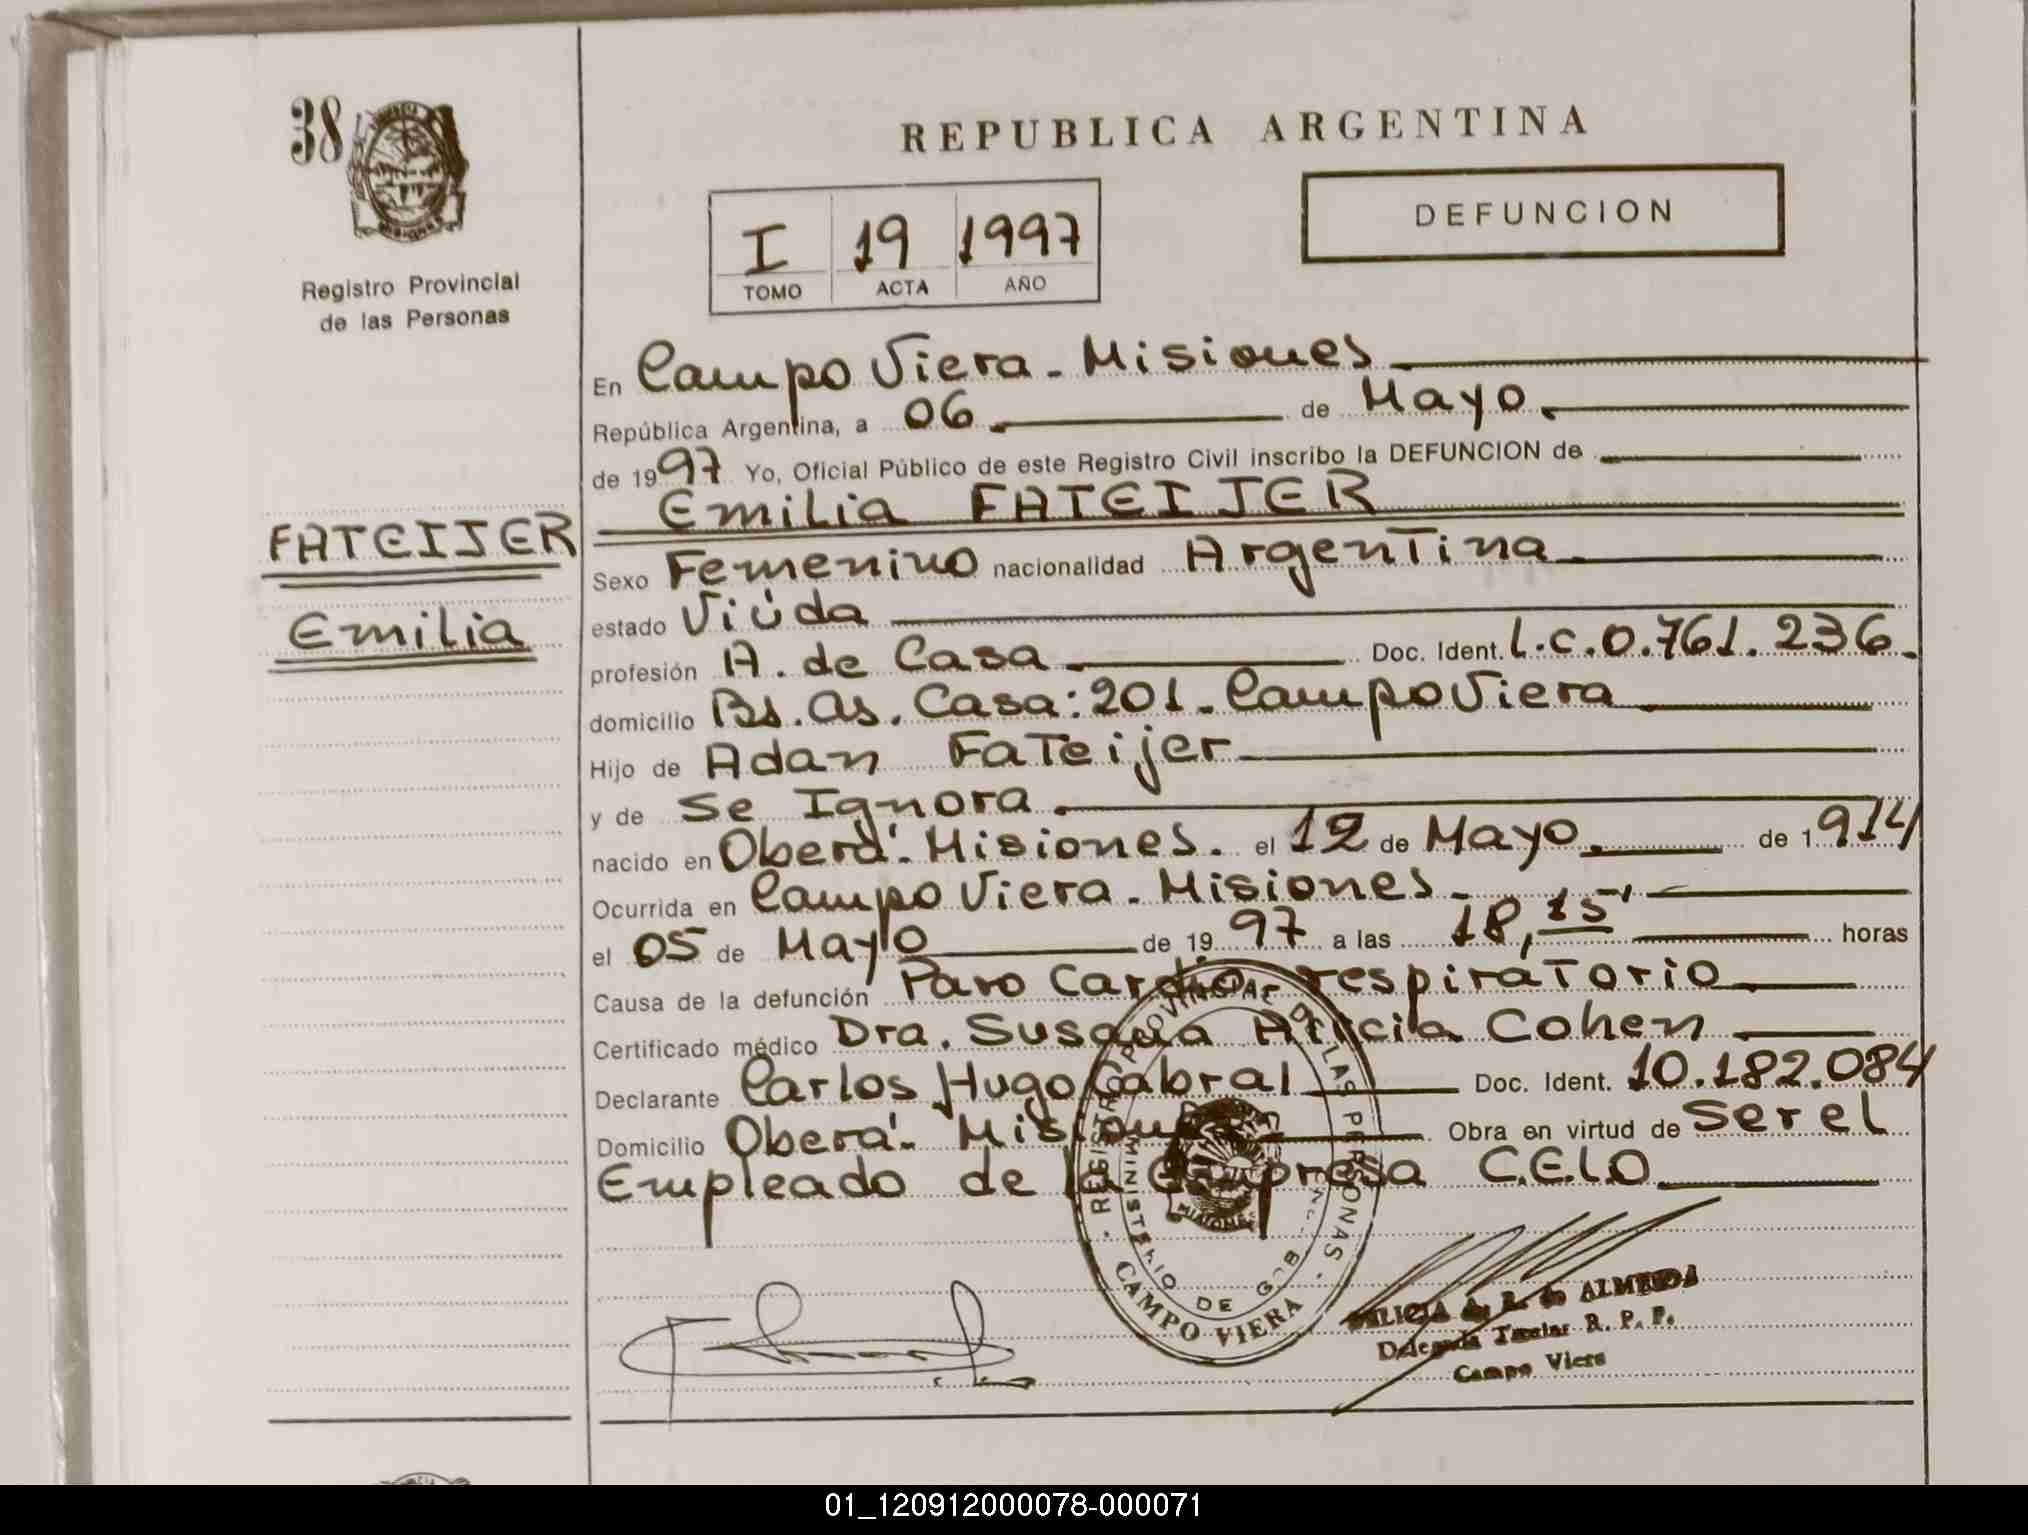 38
Registro Provincial
de las Personas
FATEIJER
Emilia
REPUBLICA ARGENTINA
I 19 1997
TOMO ACTA AÑO
DEFUNCION
En Campo Viera - Misiones
República Argentina, a 06 de Mayo
de 1997 Yo, Oficial Público de este Registro Civil inscribo la DEFUNCION de
Emilia FATEIJER
Sexo Femenino nacionalidad Argentina
estado Viúda
profesión A. de Casa Doc. Ident. L.C.0.761.236
domicilio Bs. As. Casa: 201 - Campo Viera
Hijo de Adan Fateijer
y de Se Ignora
nacido en Oberá - Misiones. el 12 de Mayo de 1914
Ocurrida en Campo Viera - Misiones
el 05 de Mayo de 1997 a las 18,15' horas
Causa de la defunción Paro Cardio respiratorio
Certificado médico Dra. Susana Alicia Cohen
Declarante Carlos Hugo Cabral Doc. Ident. 10.182.084
Domicilio Oberá - Misiones Obra en virtud de Ser el
Empleado de la Empresa C.E.L.O
REGISTRO PROVINCIAL DE LAS PERSONAS
MINISTERIO DE GOB
MISIONES
CAMPO VIERA
de ALMEIDA
Delegada Titular R. P. P.
Campo Viera
01_120912000078-000071